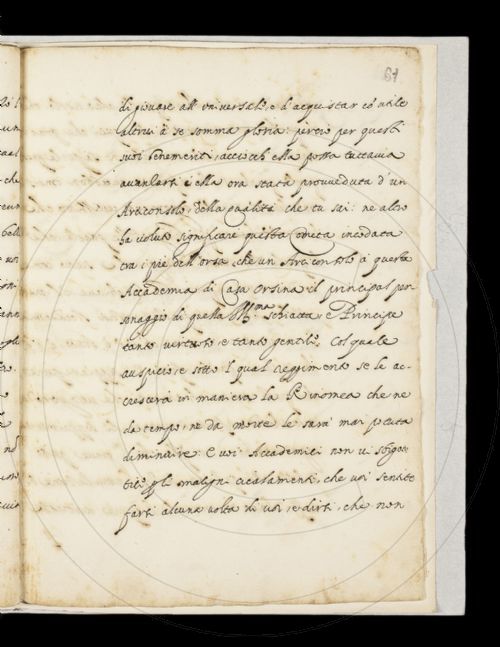 61
di giovare all' universale, e d'acquistar co' utile
altrui à se somma gloria: perciò per questi
suoi benemeriti, acciocch' ella possa tuttavia
avanzarsi è ella ora stata provveduta d'un
Arciconsolo, della qualità che tu sai: ne altro
ha voluto significare questa Cometa incodata
tra i piè dell'orsa, che un Arciconsolo à questa
Accademia di Casa Orsina il principal per
sonaggio di quella Ill.ma schiatta, e Principe
tanto vertuoso, e tanto gentile. Col quale
auspicio, e sotto 'l qual reggimento se le ac-
crescerà in maniera la Rinomea che ne
da tempo, ne da morte le sarà mai potuta
diminuire. E voi Accademici non vi sbigot
tite pe' maligni cicalamenti, che voi sentite
farsi alcuna volta di voi, e dirsi, che non